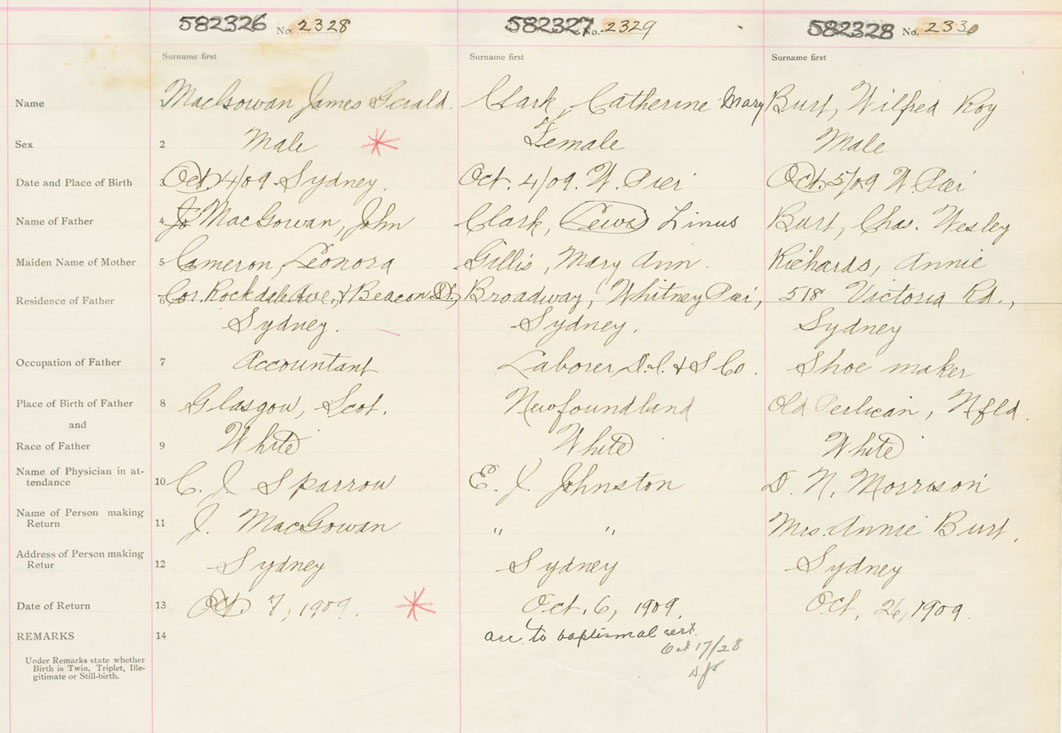 582326 No. 2328 582327 No. 2329 582328 No. 2330
Surname first Surname first Surname first
Name MacGowan James Gerald. Clark, Catherine Mary Burt, Wilfred Roy
Sex 2 Male Female Male
Date and Place of Birth 3 Oct. 4/09. Sydney. Oct. 4/09. W. Pier Oct. 5/09 W. Pier
Name of Father 4 J. MacGowan, John Clark, Lewis Linus Burt, Chas. Wesley
Maiden Name of Mother 5 Cameron, Leonora Gillis, Mary Ann. Richards, Annie
Residence of Father 6 Cor. Rockdale Ave, & Beacon St, Broadway, Whitney Pier, 518 Victoria Rd.,
Sydney. Sydney. Sydney
Occupation of Father 7 Accountant Laborer D. I. & S Co. Shoe maker
Place of Birth of Father 8 Glasgow, Scot. Newfoundland Old Perlican, Nfld.
and
Race of Father 9 White White White
Name of Physician in at-
tendance 10 C. J. Sparrow E. J. Johnston D. N. Morrison
Name of Person making
Return 11 J. MacGowan " " Mrs. Annie Burt.
Address of Person making
Retur 12 Sydney Sydney Sydney
Date of Return 13 Oct. 7, 1909. Oct. 6, 1909. Oct. 26, 1909
REMARKS 14 acc to baptismal cert.
Oct 17/28
Under Remarks state whether
Birth is Twin, Triplet, Ille-
gitimate or Still-birth.